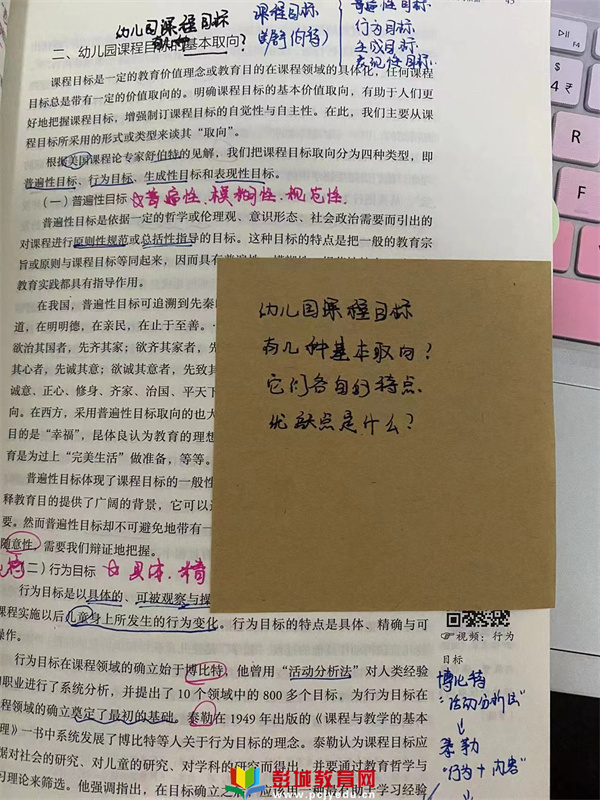 幼儿园课程目标
课程目标
普遍性目标
行为目标
生成目标
表现性目标
二、幼儿园课程目标的基本取向?
课程目标是一定的教育价值理念或教育目的在课程领域的具体化,任何课程
目标总是带有一定的价值取向的。明确课程目标的基本价值取向,有助于人们更
好地把握课程目标,增强制订课程目标的自觉性与自主性。在此,我们主要从课
程目标所采用的形式或类型来谈其“取向”。
根据美国课程论专家舒伯特的见解,我们把课程目标取向分为四种类型,即
普遍性目标、行为目标、生成性目标和表现性目标。
(一)普遍性目标 普遍性、模糊性、规范性
普遍性目标是依据一定的哲学或伦理观、意识形态、社会政治需要而引出的
对课程进行原则性规范或总括性指导的目标。这种目标的特点是把一般的教育宗
旨或原则与课程目标等同起来,因而具有
教育实践都具有指导作用。
在我国,普遍性目标可追溯到先秦
道,在明明德,在亲民,在止于至善。
欲治其国者,先齐其家;欲齐其家者,先
其心者,先诚其意;欲诚其意者,先致其
诚意、正心、修身、齐家、治国、平天下
向。在西方,采用普遍性目标取向的也大
目的是“幸福”,昆体良认为教育的理想
育是为过上“完美生活”做准备,等等。
普遍性目标体现了课程目标的一般性
释教育目的提供了广阔的背景,它可以
要。然而普遍性目标却不可避免地带有一
随意性,需要我们辩证地把握。
(二)行为目标 具体、精
行为目标是以具体的、可被观察与操
课程实施以后儿童身上所发生的行为变化。行为目标的特点是具体、精确与可
操作。
行为目标在课程领域的确立始于博比特,他曾用“活动分析法”对人类经验
和职业进行了系统分析,并提出了10个领域中的800多个目标,为行为目标在
课程领域的确立奠定了最初的基础。泰勒在1949年出版的《课程与教学的基本
原理》一书中系统发展了博比特等人关于行为目标的理念。泰勒认为课程目标应
据对社会的研究、对儿童的研究、对学科的研究而得出,并要通过教育哲学与
学习理论来筛选。他强调指出,在目标确立之后,应该用一种最有助于学习经验
幼儿园课程目标
有几种基本取向?
它们各自的特点
优缺点是什么?
视频:行为
目标
博比特
“活动分析法”
泰勒
“行为+内容”
彭城教育网
www.pcjy.edu.cn
$
4
¥
R
F